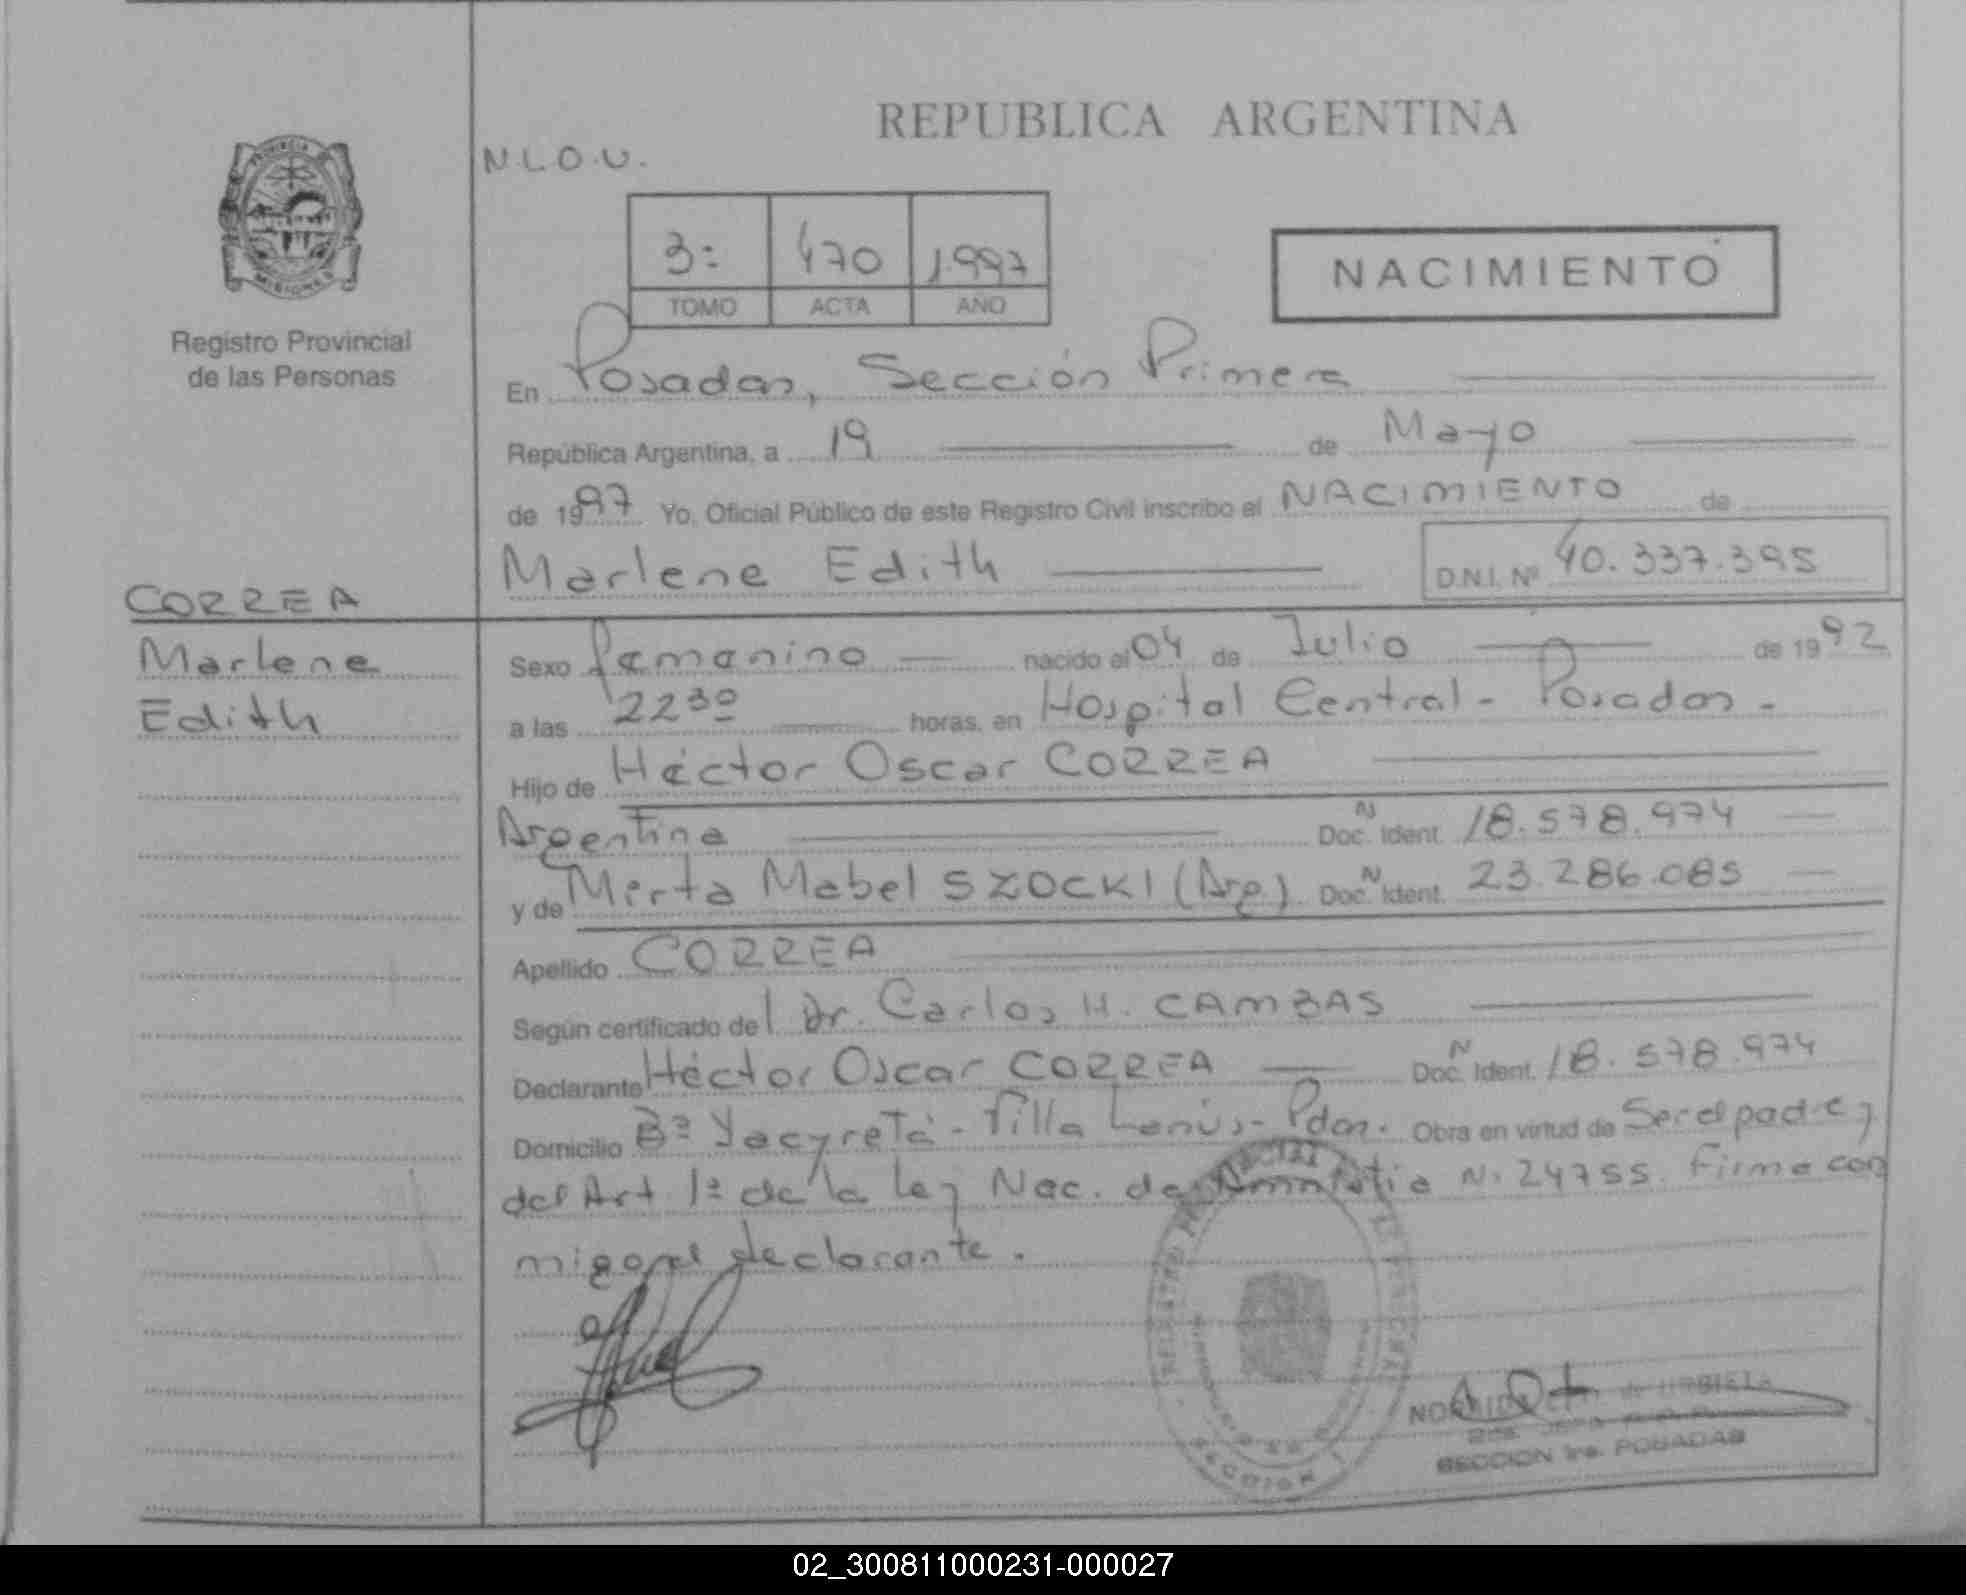 REPUBLICA ARGENTINA
N.L.O.U.
PROVINCIA
MISIONES
Registro Provincial
de las Personas
3= 470 1.997
TOMO ACTA AÑO
NACIMIENTO
En Posadas, Sección Primera
República Argentina, a 19 de Mayo
de 1997 Yo, Oficial Público de este Registro Civil inscribo el NACIMIENTO de
Marlene Edith D.N.I. Nº 40.337.395
CORREA
Marlene
Edith
Sexo femenino nacido el 04 de Julio de 1992
a las 2230 horas, en Hospital Central - Posadas -
Hijo de Héctor Oscar CORREA
Argentina Doc. N Ident. 18.578.974
y de Mirta Mabel SZOCKI (Arg) Doc. N Ident. 23.286.085
Apellido CORREA
Según certificado del Dr. Carlos H. CAMBAS
Declarante Héctor Oscar CORREA Doc. N Ident. 18.578.974
Domicilio Bº Yacyretá - Villa Lanús - Pdas. Obra en virtud de Ser el padre y
del Art 1º de la ley Nac. de Amnistia N. 24755. Firma con
migo el declarante.
de URBIETA
SECCION 1ra. POSADAS
SECCION 1
02_300811000231-000027